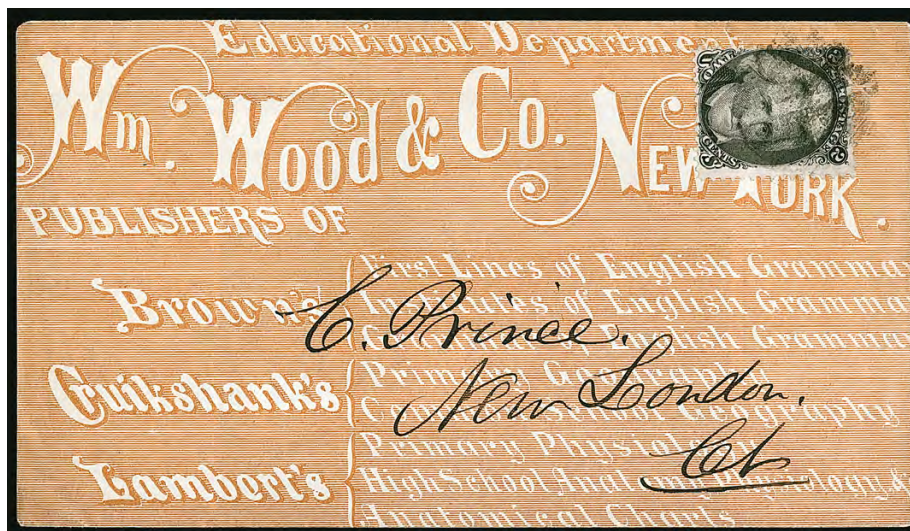 Educational Department
Wm. Wood & Co. New York.
PUBLISHERS OF
Brown's
First Lines of English Gramma
of English Gramma
of English Gramma
Cruikshank's
Primary Geography
Geography
Lambert's
Primary Physiology
High School Anatomy Physiology &
Anatomical Charts
C. Prince.
New London.
Ct